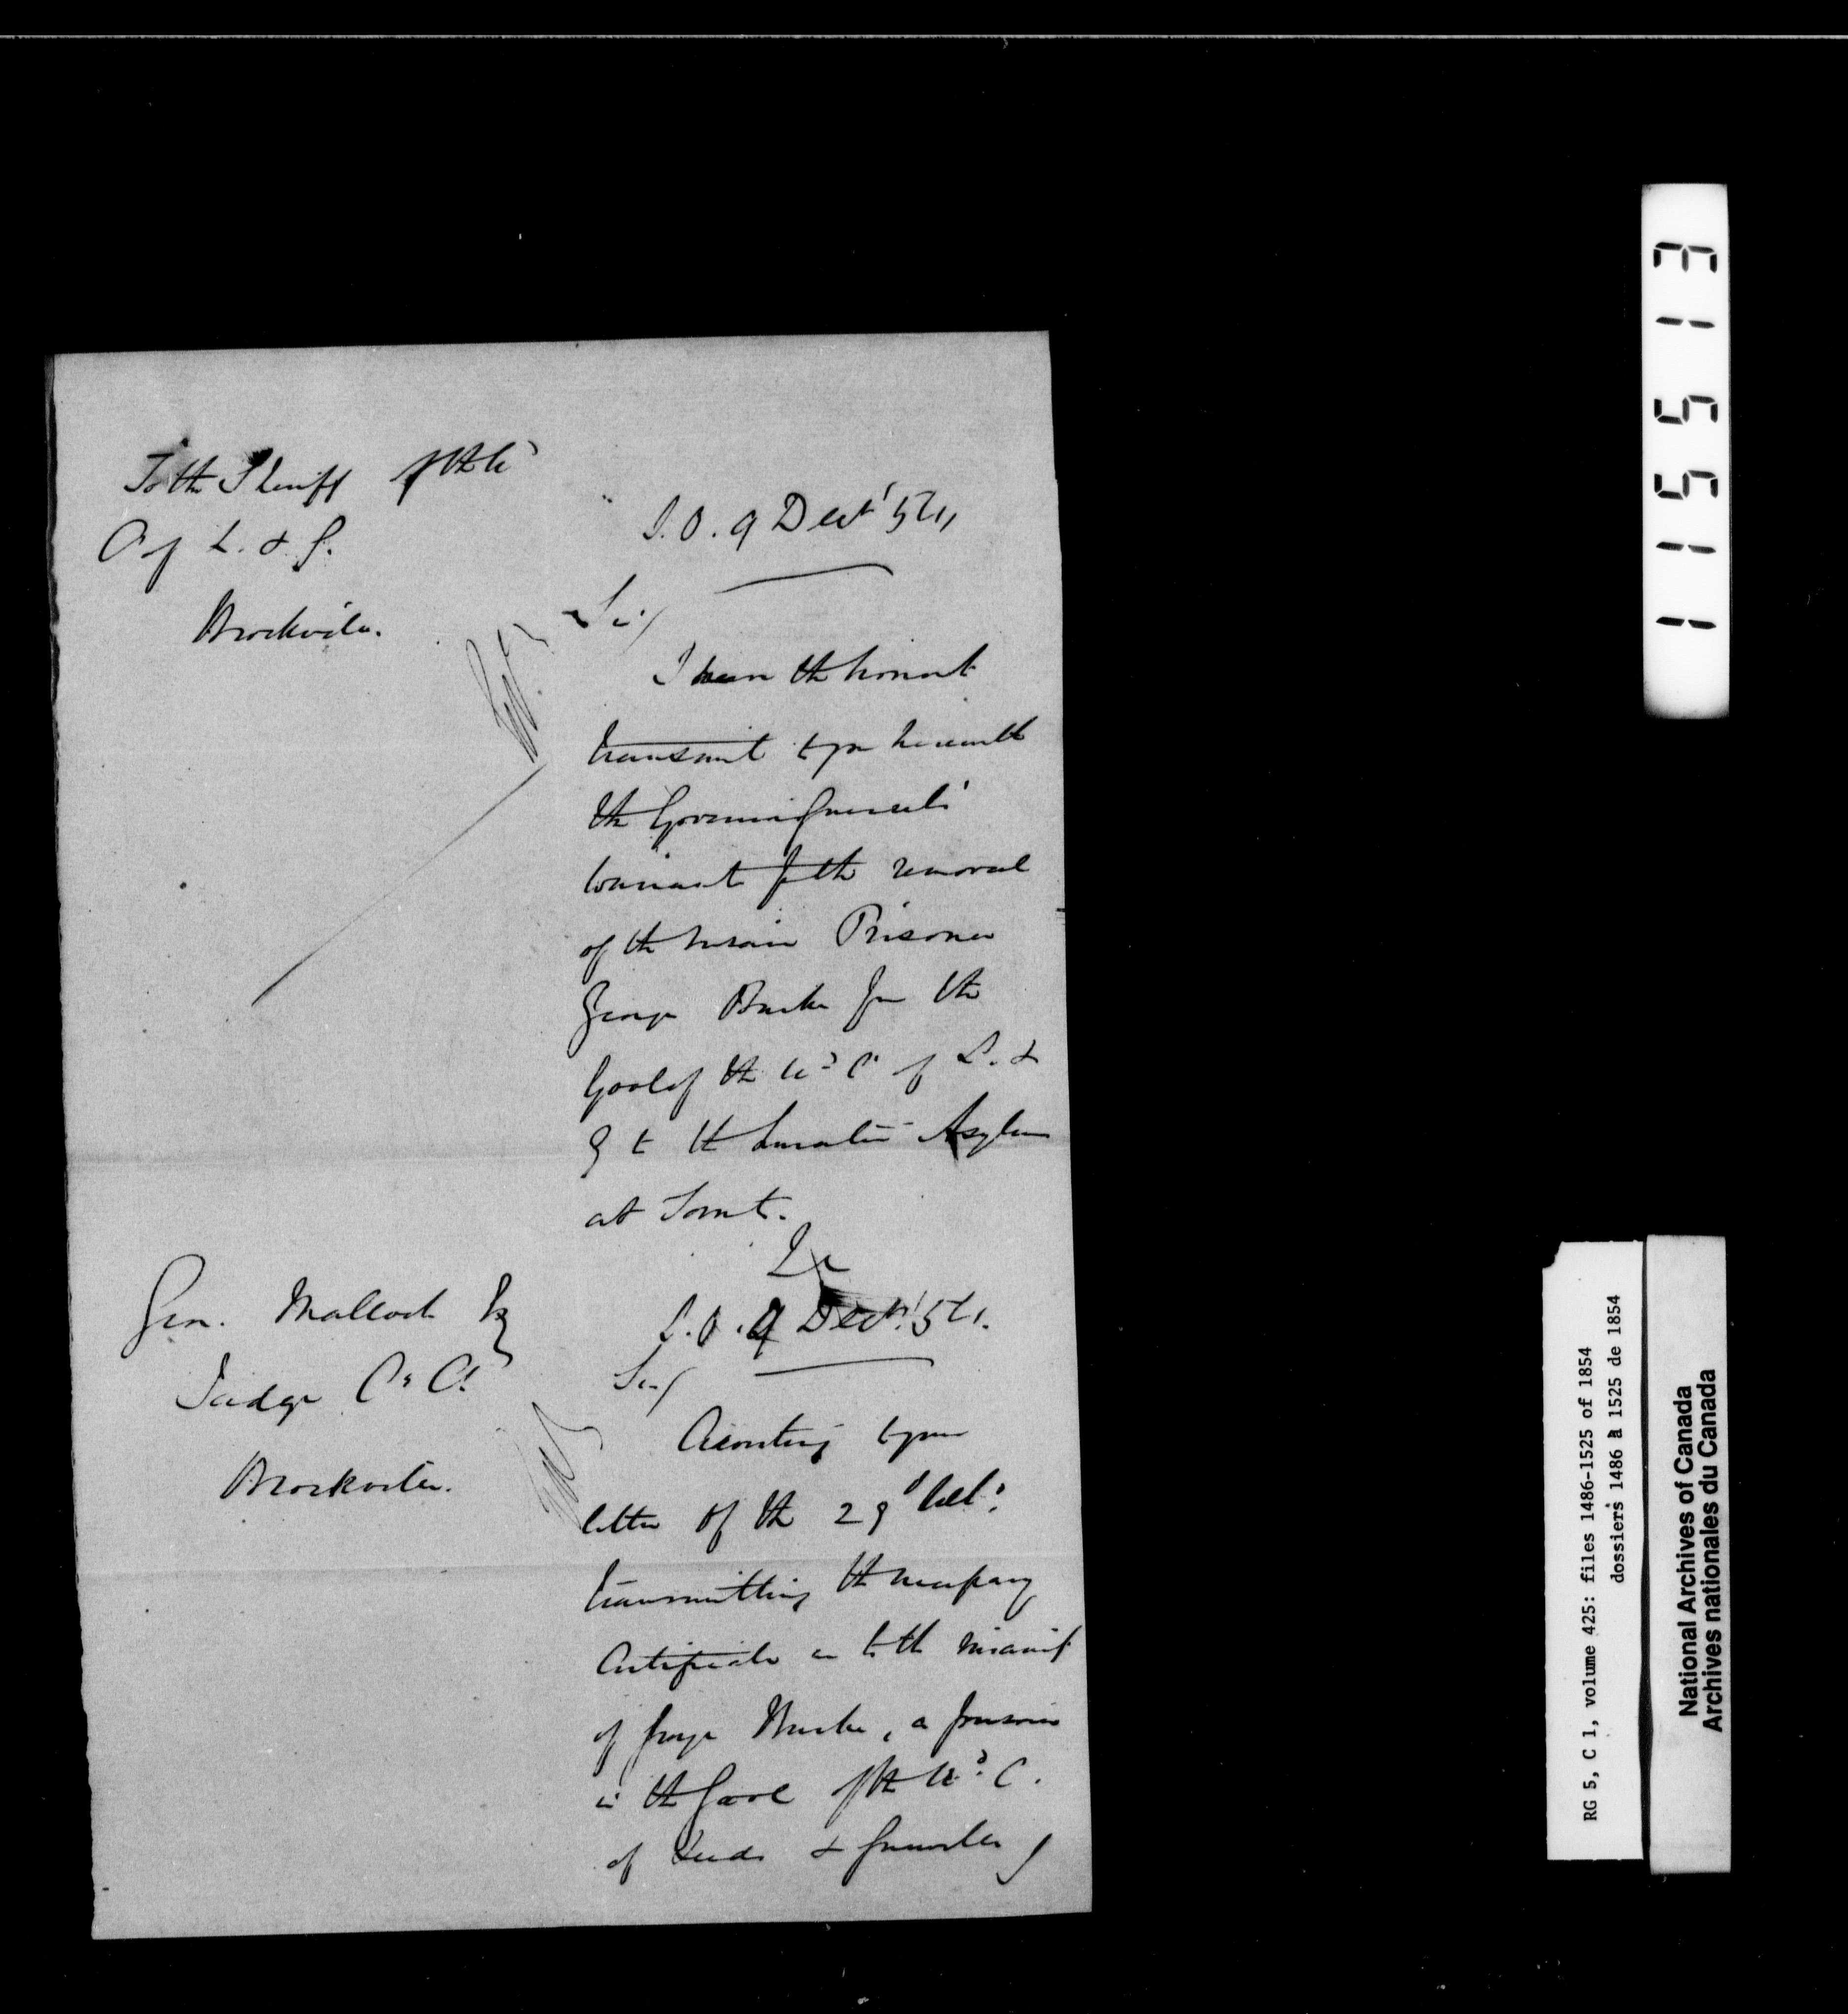 To the Sheriff of the Ud
C of L. & G.
Brockville.
S.O. 9 Decr '54
Sir/
I have the honor to
transmit to you herewith
the Governor General's
warrant for the removal
of the Insane Prisoner
George Burke from the
Gaol of the Ud C of L. &
G to the Lunatic Asylum
at Toronto.
Geo. Malloch Esq
Judge Co. Ct
Brockville.
S.O. 9 Decr '54.
Sir/
Adverting to your
letter of the 29 Ult.
transmitting the necessary
Certificate as to the insanity
of George Burke, a prisoner
in the Gaol of the Ud C.
of Leeds & Grenville
115513
RG 5, C 1, volume 425: files 1486-1525 of 1854
dossiers 1486 à 1525 de 1854
National Archives of Canada
Archives nationales du Canada